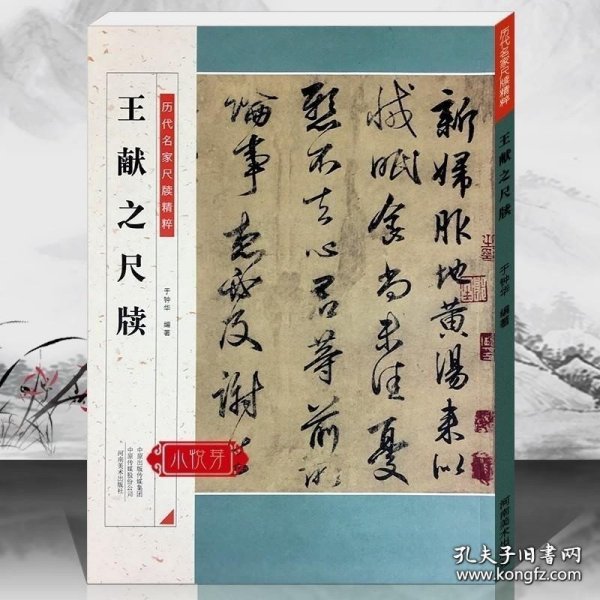 王献之尺牍
历代名家尺牍精粹
于钟华 编著
中原出版传媒集团
中原传媒股份公司
河南美术出版社
新婦服地黄湯来似
減眠食尚未佳憂
懸不去心君等前所
論事想必及謝生
小悦芽
历代名家尺牍精粹
王献之尺牍
于钟华 编著
河南美术出
孔夫子旧书网
www.kongfz.com